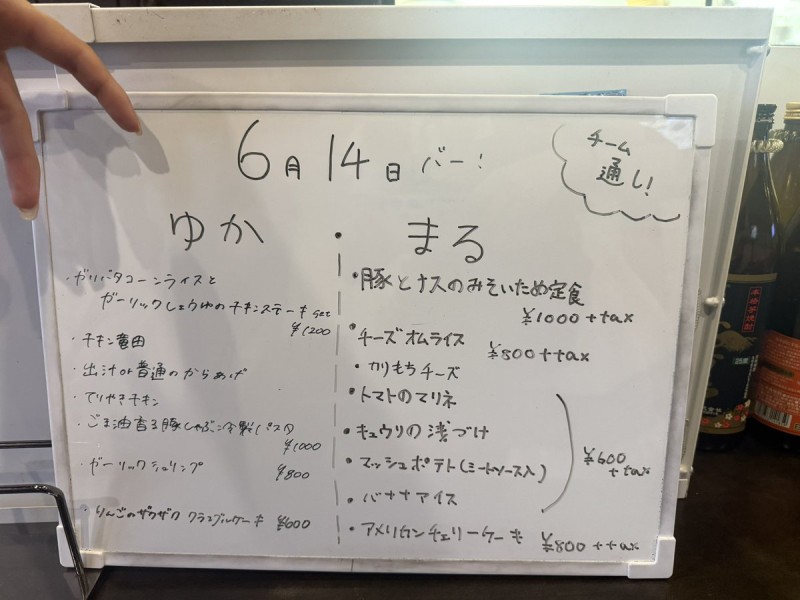 6月14日 バー!
チーム
通し!
ゆか・まる
・ガリバタコーンライスと
ガーリックしょうゆのチキンステーキ set
¥1200
・チキン竜田
・出汁or普通のからあげ
・てりやきチキン
・ごま油香る豚しゃぶ冷製パスタ
¥1000
・ガーリックシュリンプ ¥800
・りんごのザクザク クランブルケーキ ¥600
・豚とナスのみそいため定食
¥1000+tax
・チーズオムライス ¥800+tax
・カリもちチーズ
・トマトのマリネ
・キュウリの浅づけ
・マッシュポテト(ミートソース入)
・バナナアイス
¥600
+tax
・アメリカンチェリーケーキ ¥800+tax
本格芋焼酎